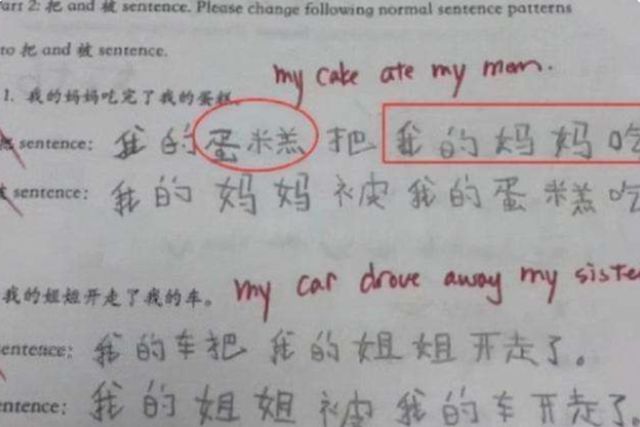 Part 2: 把 and 被 sentence. Please change following normal sentence patterns
to 把 and 被 sentence.
my cake ate my mom.
1. 我的妈妈吃完了我的蛋糕。
sentence: 我的蛋糕把我的妈妈吃
sentence: 我的妈妈被我的蛋糕吃
我的姐姐开走了我的车。
my car drove away my siste
entence: 我的车把我的姐姐开走了。
ntence: 我的姐姐被我的车开走了.